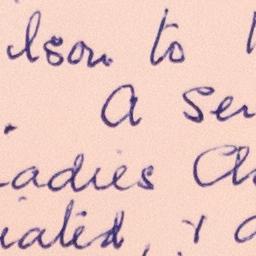 lson to
A Ser
Ladies Cl
iated, & a